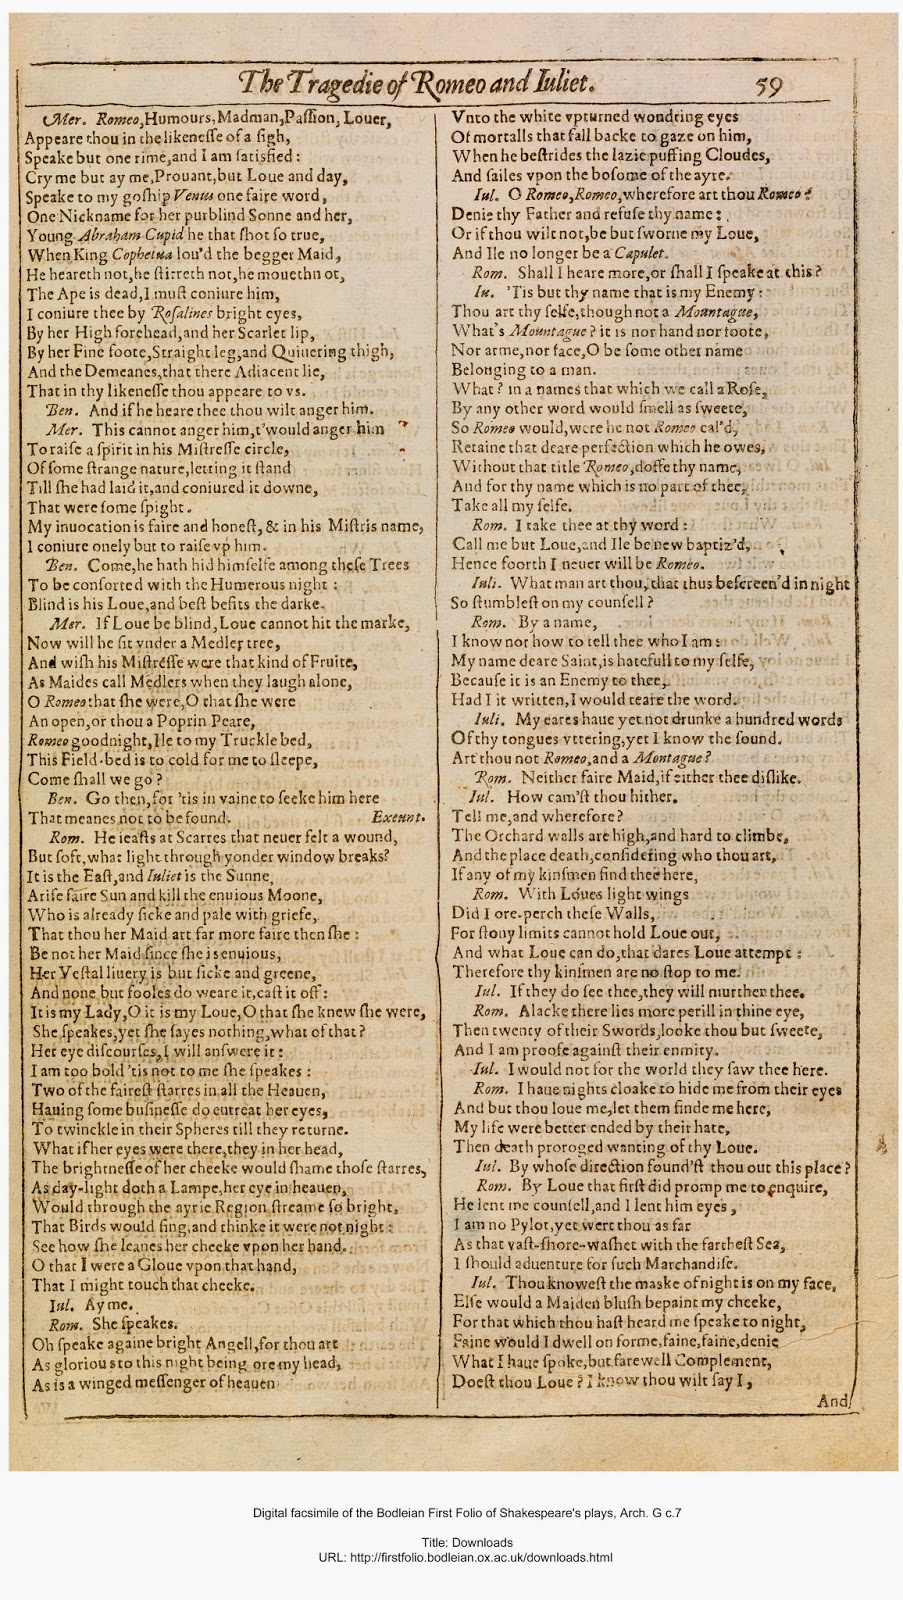 The Tragedie of Romeo and Iuliet. 59
Mer. Romeo, Humours, Madman, Paſſion, Louer,
Appeare thou in the likeneſſe of a ſigh,
Speake but one rime, and I am ſatisfied:
Cry me but ay me, Prouant, but Loue and day,
Speake to my goſhip Venus one faire word,
One Nickname for her purblind Sonne and her,
Young Abraham Cupid he that ſhot ſo true,
When King Cophetua lou'd the begger Maid,
He heareth not, he ſtirreth not, he moueth not,
The Ape is dead, I muſt coniure him,
I coniure thee by Roſalines bright eyes,
By her High forehead, and her Scarlet lip,
By her Fine foote, Straight leg, and Quiuering thigh,
And the Demeanes, that there Adiacent lie,
That in thy likeneſſe thou appeare to vs.
Ben. And if he heare thee thou wilt anger him.
Mer. This cannot anger him, t'would anger him
To raiſe a ſpirit in his Miſtreſſe circle,
Of ſome ſtrange nature, letting it ſtand
Till ſhe had laid it, and coniured it downe,
That were ſome ſpight.
My inuocation is faire and honeſt, & in his Miſtris name,
I coniure onely but to raiſe vp him.
Ben. Come, he hath hid himſelfe among theſe Trees
To be conſorted with the Humerous night:
Blind is his Loue, and beſt befits the darke.
Mer. If Loue be blind, Loue cannot hit the marke,
Now will he ſit vnder a Medler tree,
And wiſh his Miſtreſſe were that kind of Fruite,
As Maides call Medlers when they laugh alone,
O Romeo that ſhe were, O that ſhe were
An open, or thou a Poprin Peare,
Romeo goodnight, Ile to my Truckle bed,
This Field-bed is to cold for me to ſleepe,
Come ſhall we go?
Ben. Go then, for 'tis in vaine to ſeeke him here
That meanes not to be found. Exeunt.
Rom. He ieaſts at Scarres that neuer felt a wound,
But ſoft, what light through yonder window breaks?
It is the Eaſt, and Iuliet is the Sunne,
Ariſe faire Sun and kill the enuious Moone,
Who is already ſicke and pale with griefe,
That thou her Maid art far more faire then ſhe:
Be not her Maid ſince ſhe is enuious,
Her Veſtal liuery is but ſicke and greene,
And none but fooles do weare it, caſt it off:
It is my Lady, O it is my Loue, O that ſhe knew ſhe were,
She ſpeakes, yet ſhe ſayes nothing, what of that?
Her eye diſcourſes, I will anſwere it:
I am too bold 'tis not to me ſhe ſpeakes:
Two of the faireſt ſtarres in all the Heauen,
Hauing ſome buſineſſe do entreat her eyes,
To twinckle in their Spheres till they returne.
What if her eyes were there, they in her head,
The brightneſſe of her cheeke would ſhame thoſe ſtarres,
As day-light doth a Lampe, her eye in heauen,
Would through the ayrie Region ſtreame ſo bright,
That Birds would ſing, and thinke it were not night:
See how ſhe leanes her cheeke vpon her hand.
O that I were a Gloue vpon that hand,
That I might touch that cheeke.
Iul. Ay me.
Rom. She ſpeakes.
Oh ſpeake againe bright Angell, for thou art
As glorious to this night being ore my head,
As is a winged meſſenger of heauen
Vnto the white vpturned wondring eyes
Of mortalls that fall backe to gaze on him,
When he beſtrides the lazie puffing Cloudes,
And ſailes vpon the boſome of the ayre.
Iul. O Romeo, Romeo, wherefore art thou Romeo?
Denie thy Father and refuſe thy name:
Or if thou wilt not, be but ſworne my Loue,
And Ile no longer be a Capulet.
Rom. Shall I heare more, or ſhall I ſpeake at this?
Iu. 'Tis but thy name that is my Enemy:
Thou art thy ſelfe, though not a Mountague,
What's Mountague? it is nor hand nor foote,
Nor arme, nor face, O be ſome other name
Belonging to a man.
What? in a names that which we call a Roſe,
By any other word would ſmell as ſweete,
So Romeo would, were he not Romeo cal'd,
Retaine that deare perfection which he owes,
Without that title Romeo, doffe thy name,
And for thy name which is no part of thee,
Take all my ſelfe.
Rom. I take thee at thy word:
Call me but Loue, and Ile be new baptiz'd,
Hence foorth I neuer will be Romeo.
Iuli. What man art thou, that thus beſcreen'd in night
So ſtumbleſt on my counſell?
Rom. By a name,
I know not how to tell thee who I am:
My name deare Saint, is hatefull to my ſelfe,
Becauſe it is an Enemy to thee,
Had I it written, I would teare the word.
Iuli. My eares haue yet not drunke a hundred words
Of thy tongues vttering, yet I know the ſound.
Art thou not Romeo, and a Montague?
Rom. Neither faire Maid, if either thee diſlike.
Iul. How cam'ſt thou hither.
Tell me, and wherefore?
The Orchard walls are high, and hard to climbe,
And the place death, conſidering who thou art,
If any of my kinſmen find thee here,
Rom. With Loues light wings
Did I ore-perch theſe Walls,
For ſtony limits cannot hold Loue out,
And what Loue can do, that dares Loue attempt:
Therefore thy kinſmen are no ſtop to me.
Iul. If they do ſee thee, they will murther thee.
Rom. Alacke there lies more perill in thine eye,
Then twenty of their Swords, looke thou but ſweete,
And I am proofe againſt their enmity.
Iul. I would not for the world they ſaw thee here.
Rom. I haue nights cloake to hide me from their eyes
And but thou loue me, let them finde me here,
My life were better ended by their hate,
Then death proroged wanting of thy Loue.
Iul. By whoſe direction found'ſt thou out this place?
Rom. By Loue that firſt did promp me to enquire,
He lent me counſell, and I lent him eyes,
I am no Pylot, yet wert thou as far
As that vaſt-ſhore-waſhet with the fartheſt Sea,
I ſhould aduenture for ſuch Marchandiſe.
Iul. Thou knoweſt the maske of night is on my face,
Elſe would a Maiden bluſh bepaint my cheeke,
For that which thou haſt heard me ſpeake to night,
Faine would I dwell on forme, faine, faine, denie
What I haue ſpoke, but farewell Complement,
Doeſt thou Loue? I know thou wilt ſay I,
And
Digital facsimile of the Bodleian First Folio of Shakespeare's plays, Arch. G c.7
Title: Downloads
URL: http://firstfolio.bodleian.ox.ac.uk/downloads.html